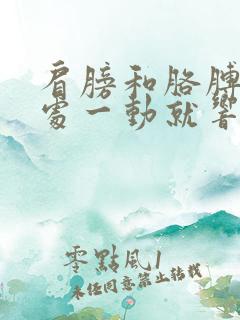 肩膀和胳膊
處一動就響
零點風1
未经同意禁止转载